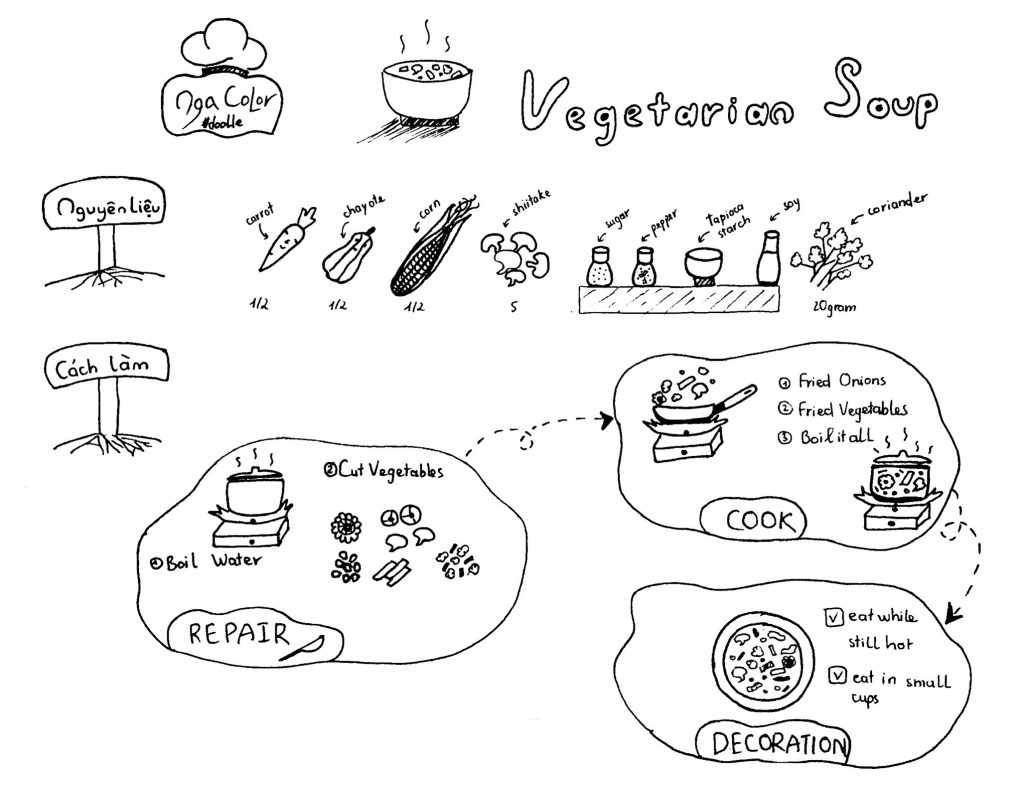 Nga Color
#doodle
Vegetarian Soup
Nguyên Liệu
carrot
chayote
corn
shiitake
sugar
pepper
Tapioca
starch
soy
coriander
1/2
1/2
1/2
5
20gram
Cách làm
① Boil Water
② Cut Vegetables
REPAIR
① Fried Onions
② Fried Vegetables
③ Boil it all
COOK
eat while
still hot
eat in small
cups
DECORATION